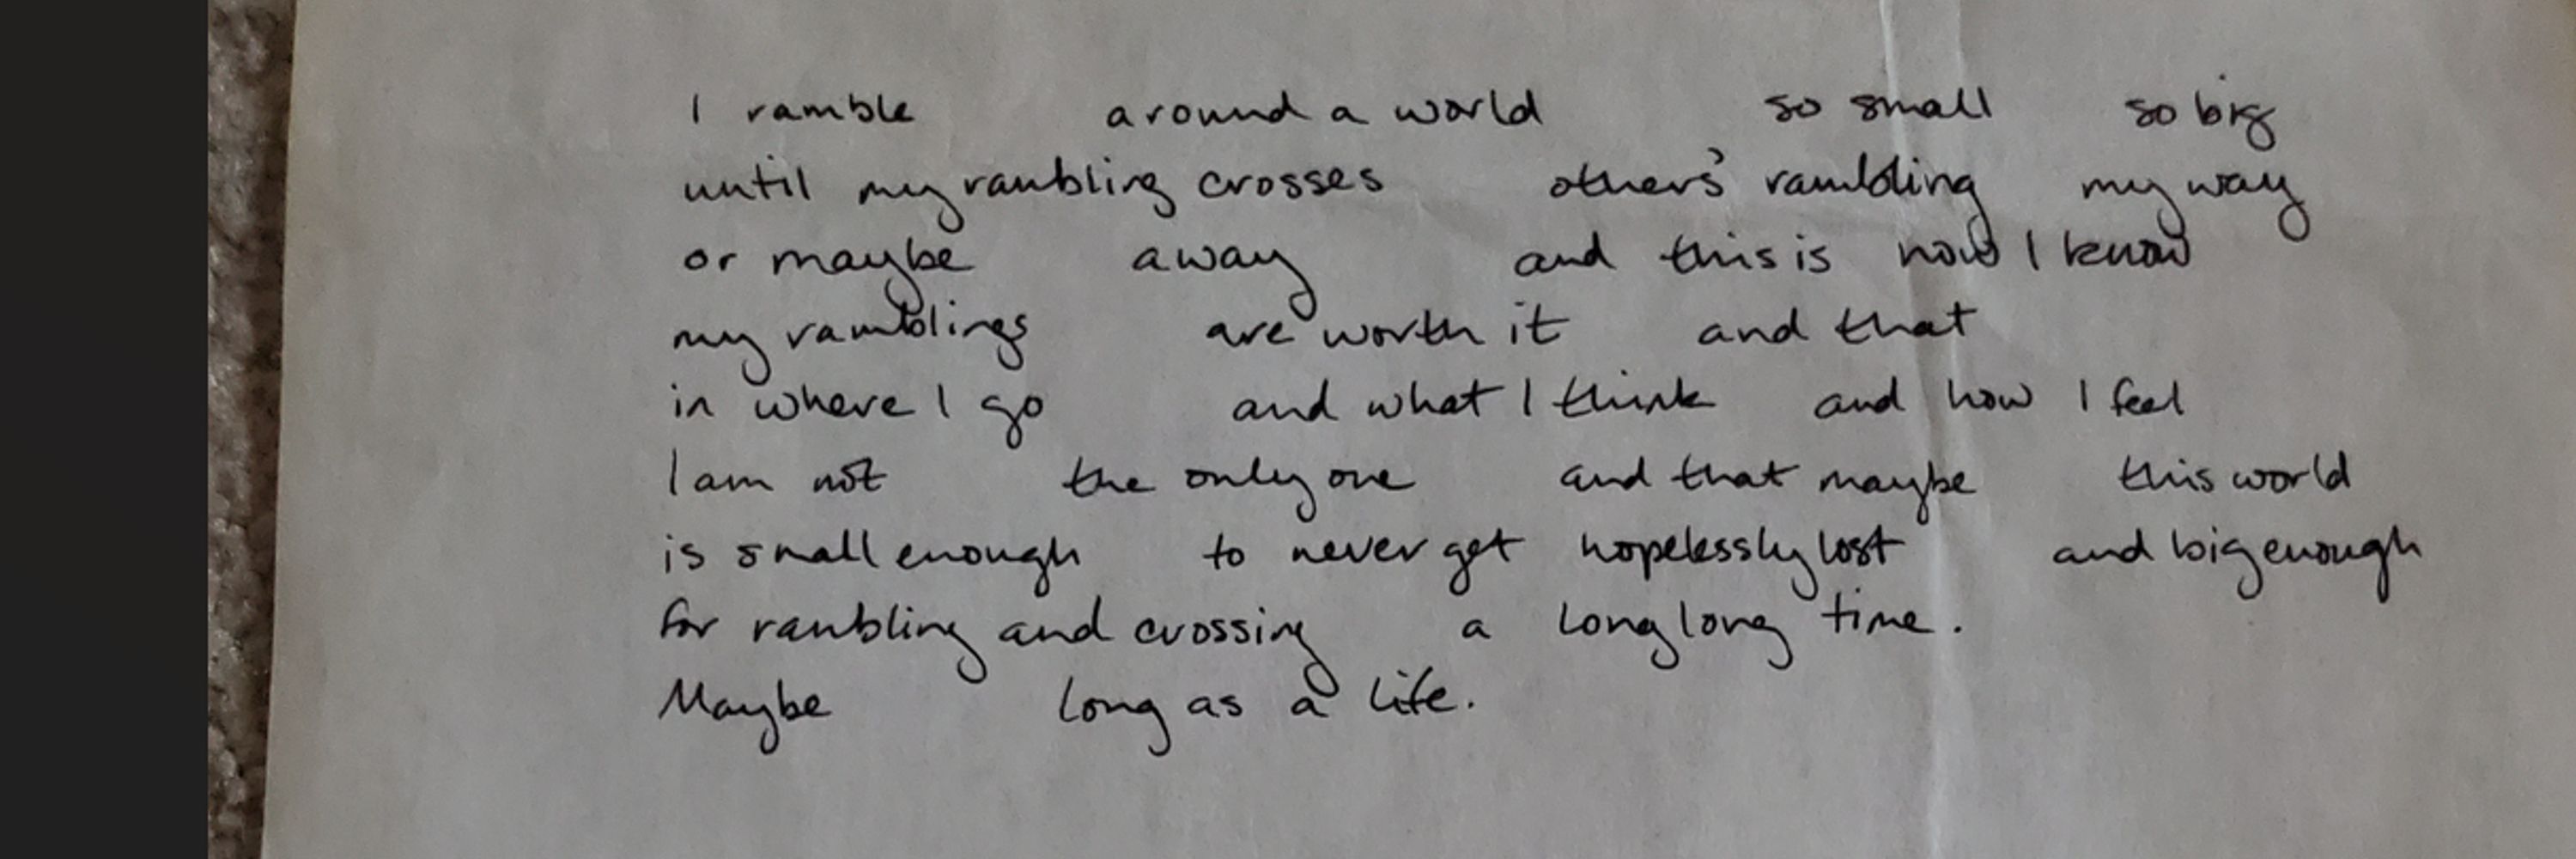 I ramble around a world so small so big
until my rambling crosses others' rambling my way
or maybe away and this is how I know
my ramblings are worth it and that
in where I go and what I think and how I feel
I am not the only one and that maybe this world
is small enough to never get hopelessly lost and big enough
for rambling and crossing a long long time.
Maybe long as a life.